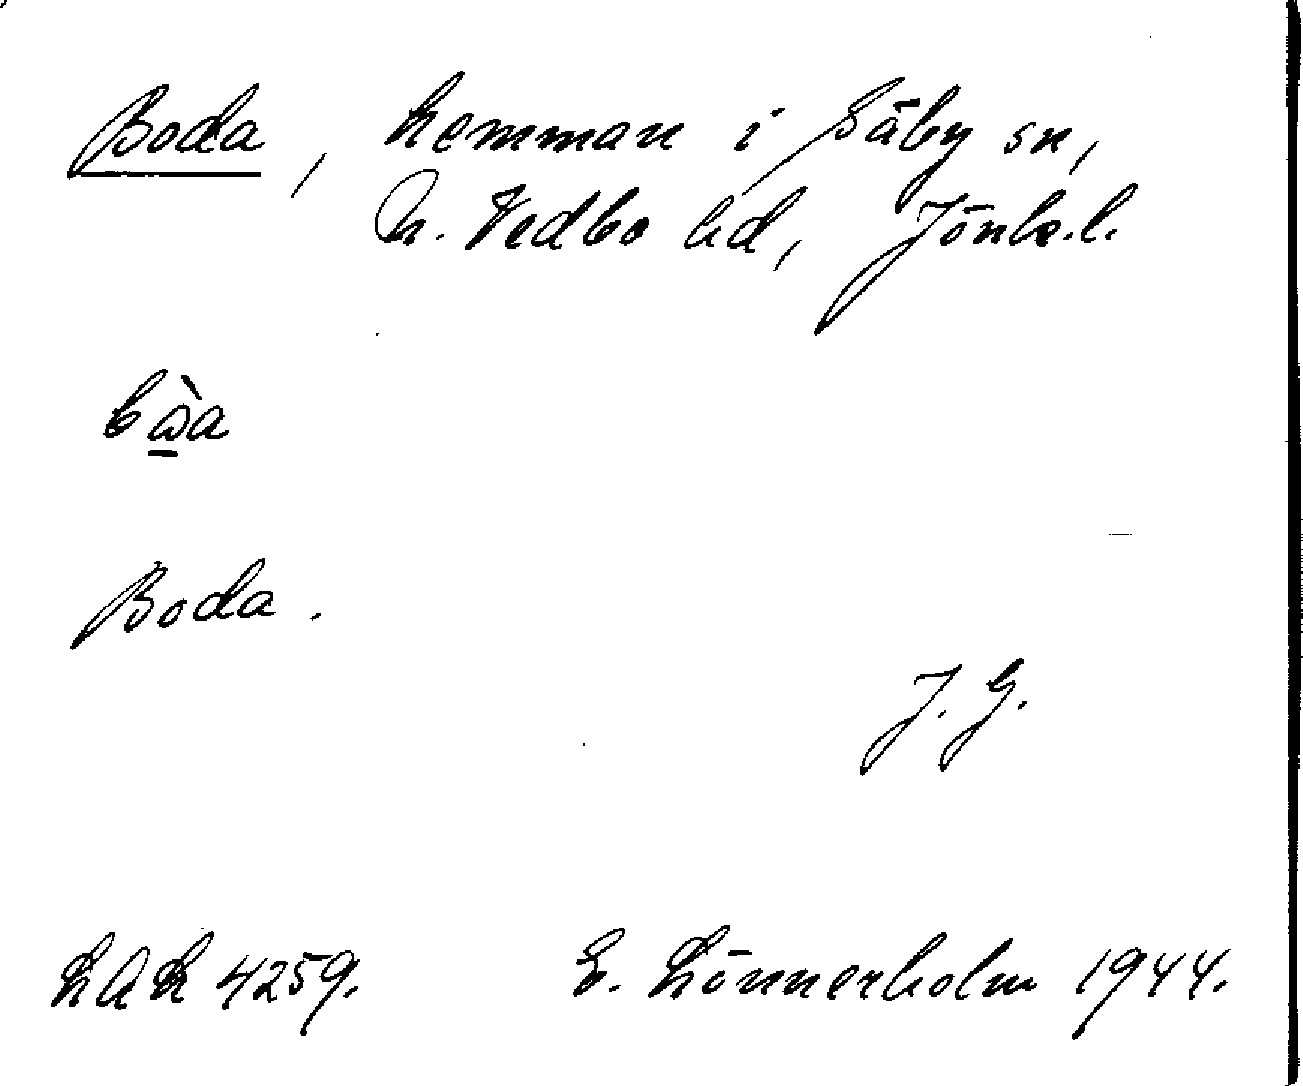 Boda, hemman i Säby sn,
N. Vedbo hd, Jönk.l.
bὼ̱a
Boda.
J. G.
LAH 4259.
E. Lönnerholm 1944.